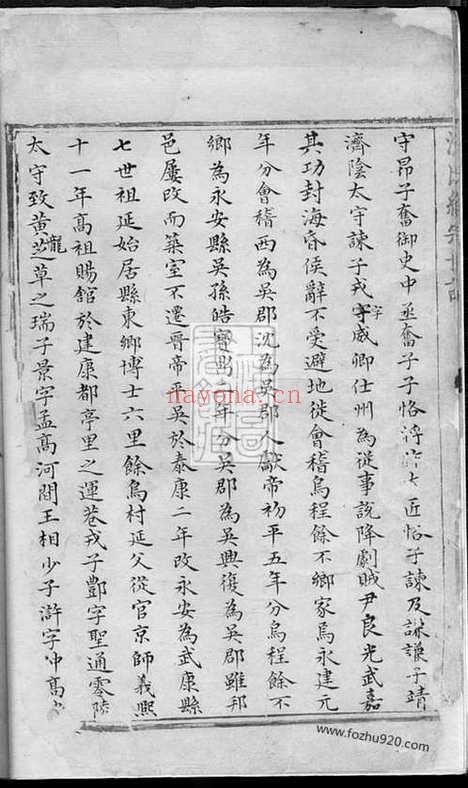 守昂子奮御史中丞奮子子恪
七匠恪子諫及謙謙子靖
濟陰太守諫子戎字威卿仕州為從事說降劇賊尹良光武嘉
其功封海昏侯辭不受避地徙會稽烏程餘不鄉家焉永建元
年分會稽西為吳郡沈為吳郡人獻帝初平五年分烏程餘不
鄉為永安縣吳孫皓寶鼎二年分吳郡為吳興復為吳郡雖邦
邑屢改而築室不遷晉帝平吳於泰康二年改永安為武康縣
七世祖延始居縣東鄉博士六里餘烏村延父從官京師義熙
十一年高祖賜館於建康都亭里之運巷戎子酆字聖通零陵
太守致黃龍芝草之瑞子景字孟高河閒王相少子滸字仲高
nayona.cn
www.fozhu920.com